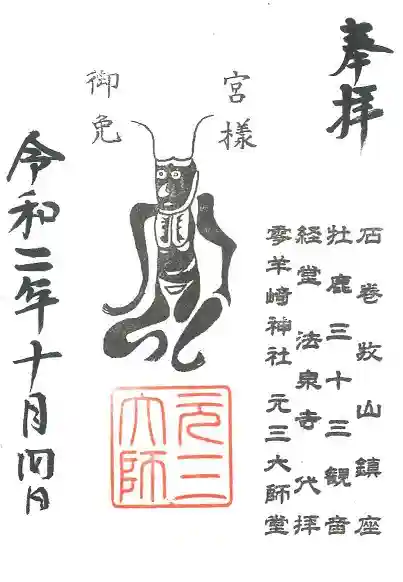 奉拝
石巻牧山鎮座
牡鹿三十三観音
経堂法泉寺代拝
零羊崎神社元三大師堂
宮様
御免
元三大師
令和二年十月四日